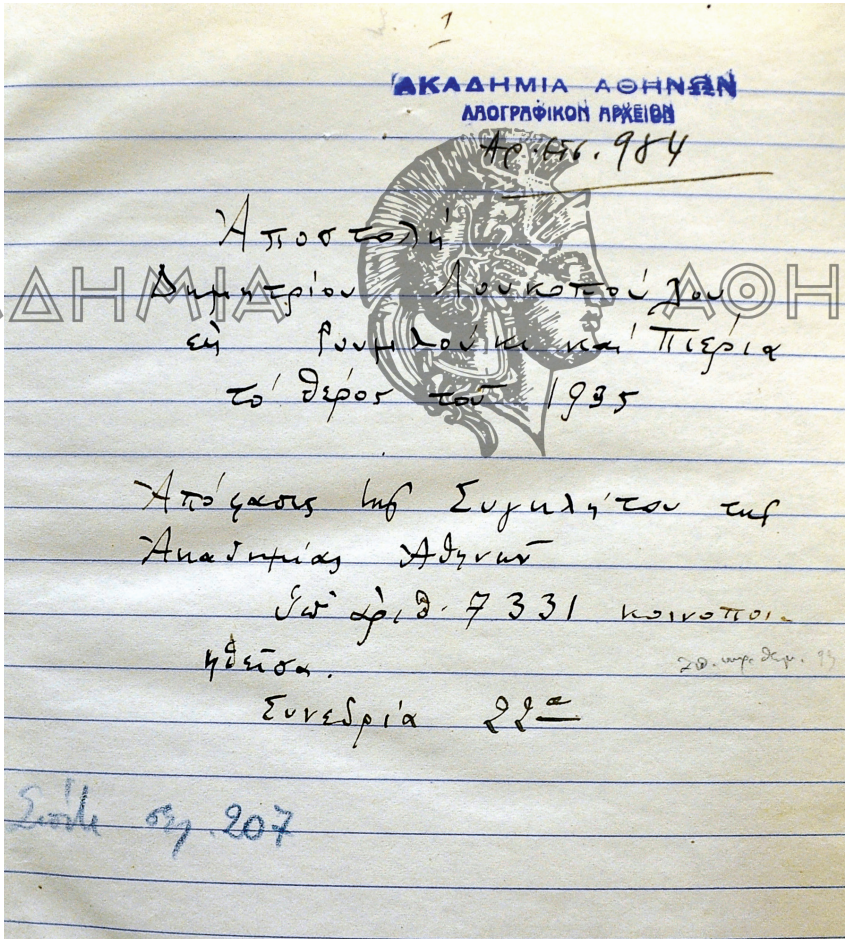 1
ΑΚΑΔΗΜΙΑ ΑΘΗΝΩΝ
ΛΑΟΓΡΑΦΙΚΟΝ ΑΡΧΕΙΟΝ
Αρ. Εισ. 984
Ἀποστολή
Δημητρίου Λουκοπούλου
εἰς Ρουμλούκι καί Πιερία
τό θέρος τοῦ 1935
Ἀπόφασις τῆς Συγκλήτου τῆς
Ἀκαδημίας Ἀθηνῶν
Ὑπ' ἀριθ. 7331 κοινοποι-
ηθεῖσα.
Συνεδρία 22α
σελ. 207